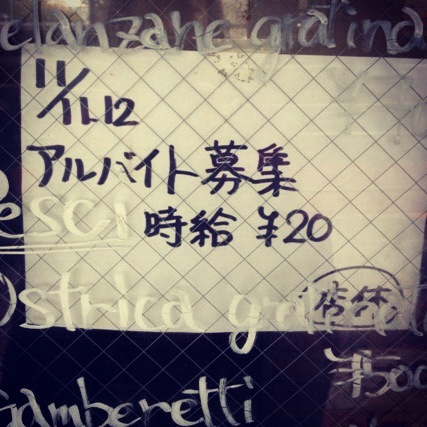 elanzane gratina
11/11.12
アルバイト募集
esci
時給 ¥20
Ostrica gra
店休
¥500
Gamberetti